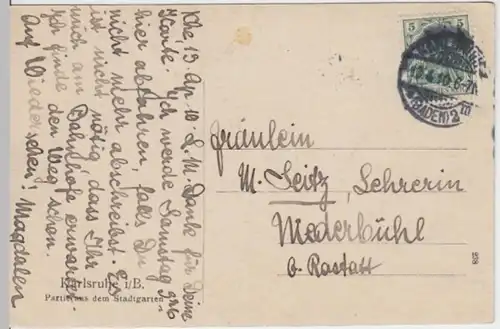 Khe, 13. Ap. 10 L. M. Danke für Deine
Karte. Ich werde Samstag 9 46
hier abfahren, falls Du
nicht mehr abschreibst. Es
ist nicht nötig, dass Ihr
mich am Bahnhofe erwartet
Ich finde den Weg schon.
Auf Wiedersehen! Magdalen
Karlsruhe i/B.
Partie aus dem Stadtgarten
5 5
(BADEN) 2
Fräulein
M. Seitz, Lehrerin
Niederbühl
b. Rastatt